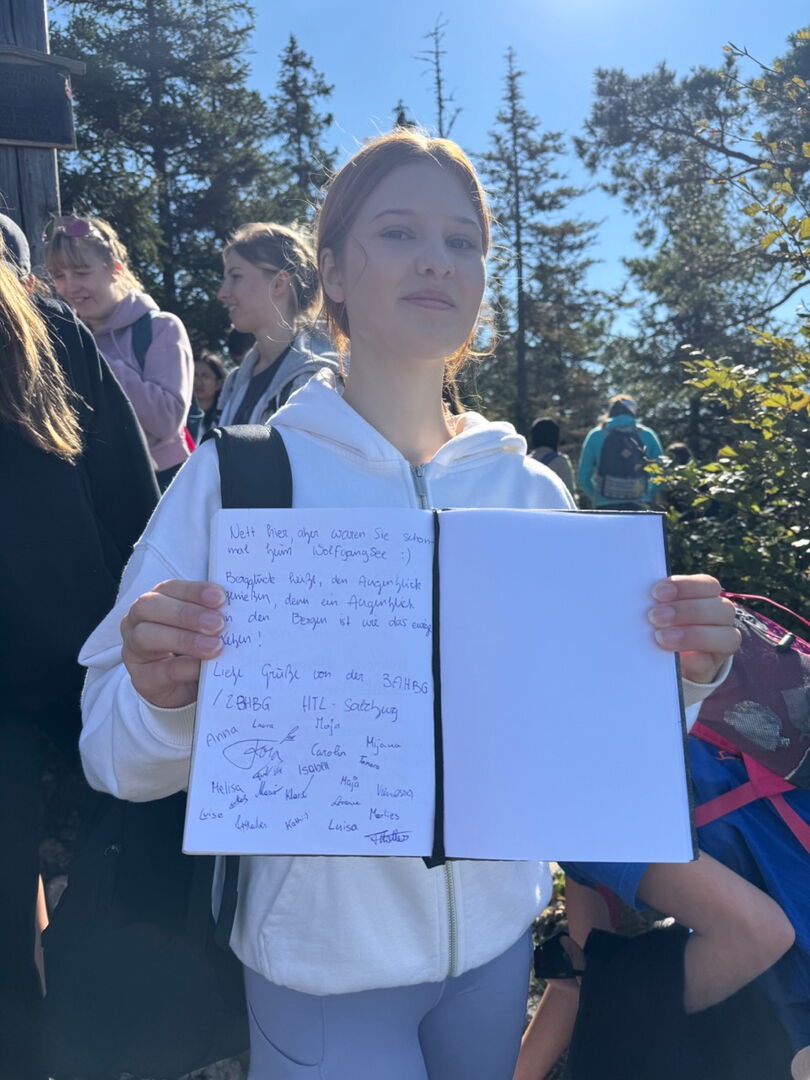 Nett hier, aber waren Sie schon
mal beim Wolfgangsee :)
Bergglück heißt, den Augenblick
genießen, denn ein Augenblick
in den Bergen ist wie das ewige
Leben!
Liebe Grüße von der 3AHBG
/ 2BHBG HTL - Salzburg
Anna Laura Maja
Carolin Mijana
Isabell Tamara
Melisa Maja Vanessa
Klara
Luise Kathi Luisa Marlies